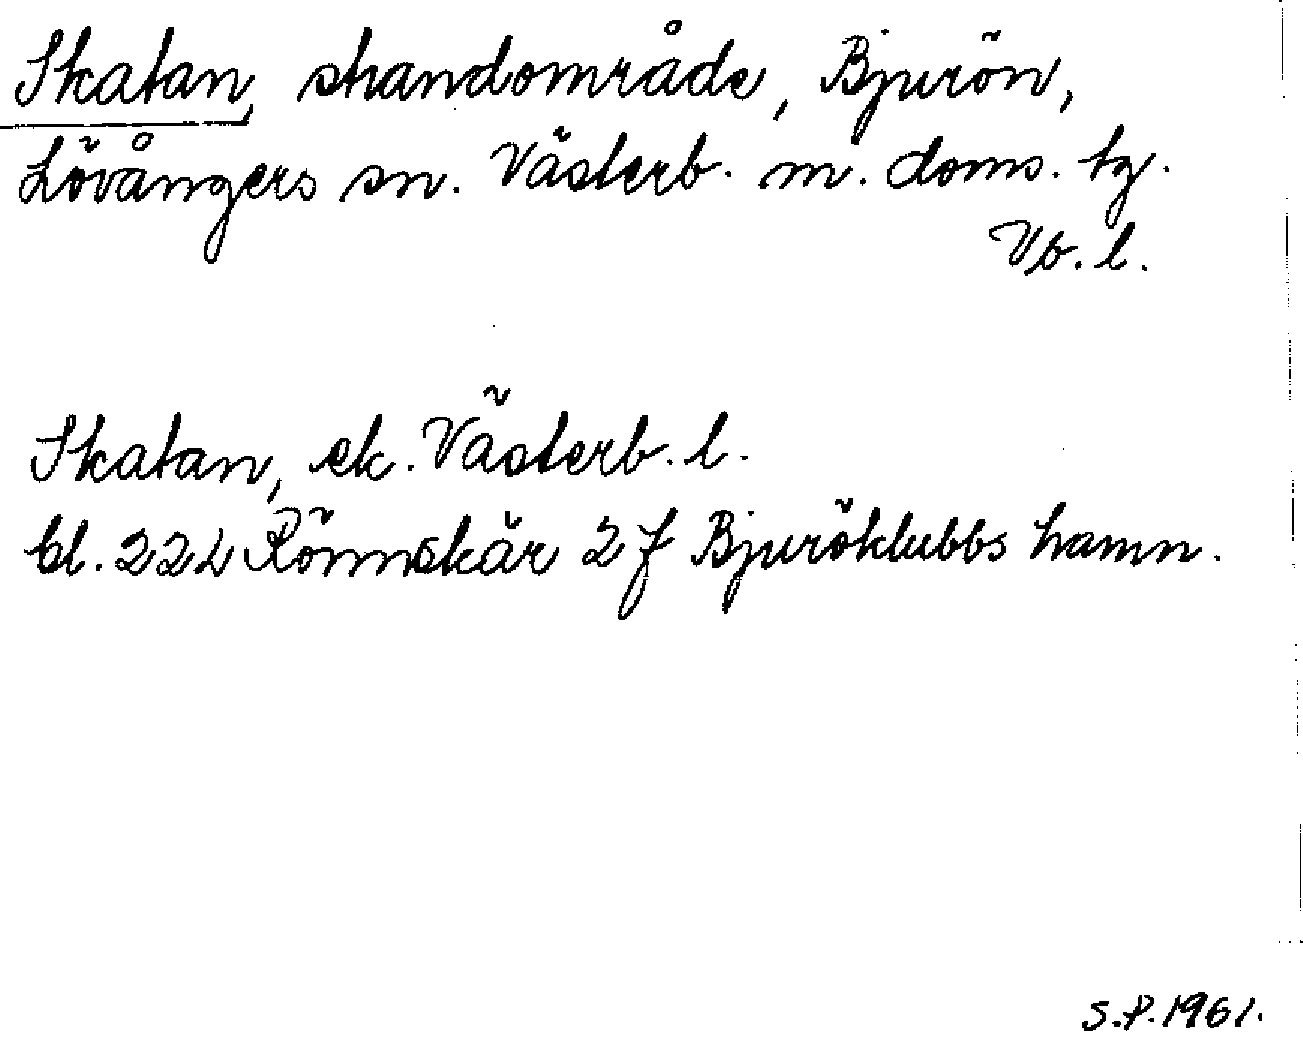 Skatan, strandområde, Bjurön,
Lövångers sn. Västerb. m. doms. tg.
Vb. l.
Skatan, ek. Västerb. l.
bl. 22L Rönnskär 2f Bjuröklubbs hamn.
S.P. 1961.